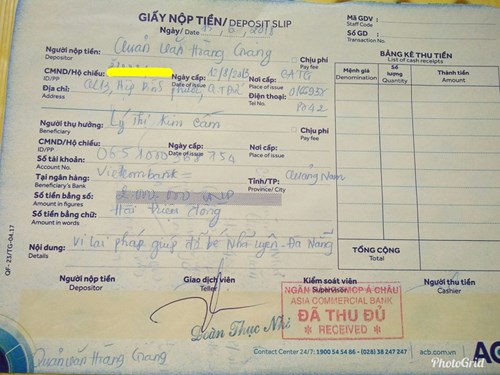 GIẤY NỘP TIỀN/ DEPOSIT SLIP
Ngày/ Date 2018
Mã GDV :
Staff Code
Số GD :
Transaction No.
Người nộp tiền: Quản Văn Hoàng Giang
Depositor
Chịu phí
Pay fee
BẢNG KÊ THU TIỀN
List of cash receipts
CMND/Hộ chiếu:
ID/PP
Ngày cấp: 10/8/2013
Date of issue
Nơi cấp: CATG
Place of issue
Mệnh giá
Denomination
Số lượng
Quantity
Thành tiền
Amount
Địa chỉ: QL1B, Hiệp Bình Phước, Q.T Đức
Address
Điện thoại:
Tel No.
Người thụ hưởng: Lý Thị Kim Cẩm
Beneficiary
Chịu phí
Pay fee
CMND/Hộ chiếu:
ID/PP
Ngày cấp:
Date of issue
Nơi cấp:
Place of issue
Số tài khoản: 0651000
Account No.
Tại ngân hàng: Vietcombank
Beneficiary's Bank
Tỉnh/TP: Quảng Nam
Province/ City
Số tiền bằng số: 2.000.000 VND
Amount in figures
Số tiền bằng chữ: Hai triệu đồng
Amount in words
Nội dung: Vi Lai pháp giúp đỡ bé Nhã Uyên - Đà Nẵng
Details
TỔNG CỘNG
Total
Người nộp tiền
Depositor
Giao dịch viên
Teller
Kiểm soát viên
Supervisor
Người thu tiền
Cashier
NGÂN HÀNG TMCP Á CHÂU
ASIA COMMERCIAL BANK
ĐÃ THU ĐỦ
★ RECEIVED ★
Đoàn Thục Nhi
Quản Văn Hoàng Giang
Contact Center 24/7: 1900 54 54 86 - (028) 38 247 247
acb.com.vn
QF - 23/TG-04.17
PhotoGrid